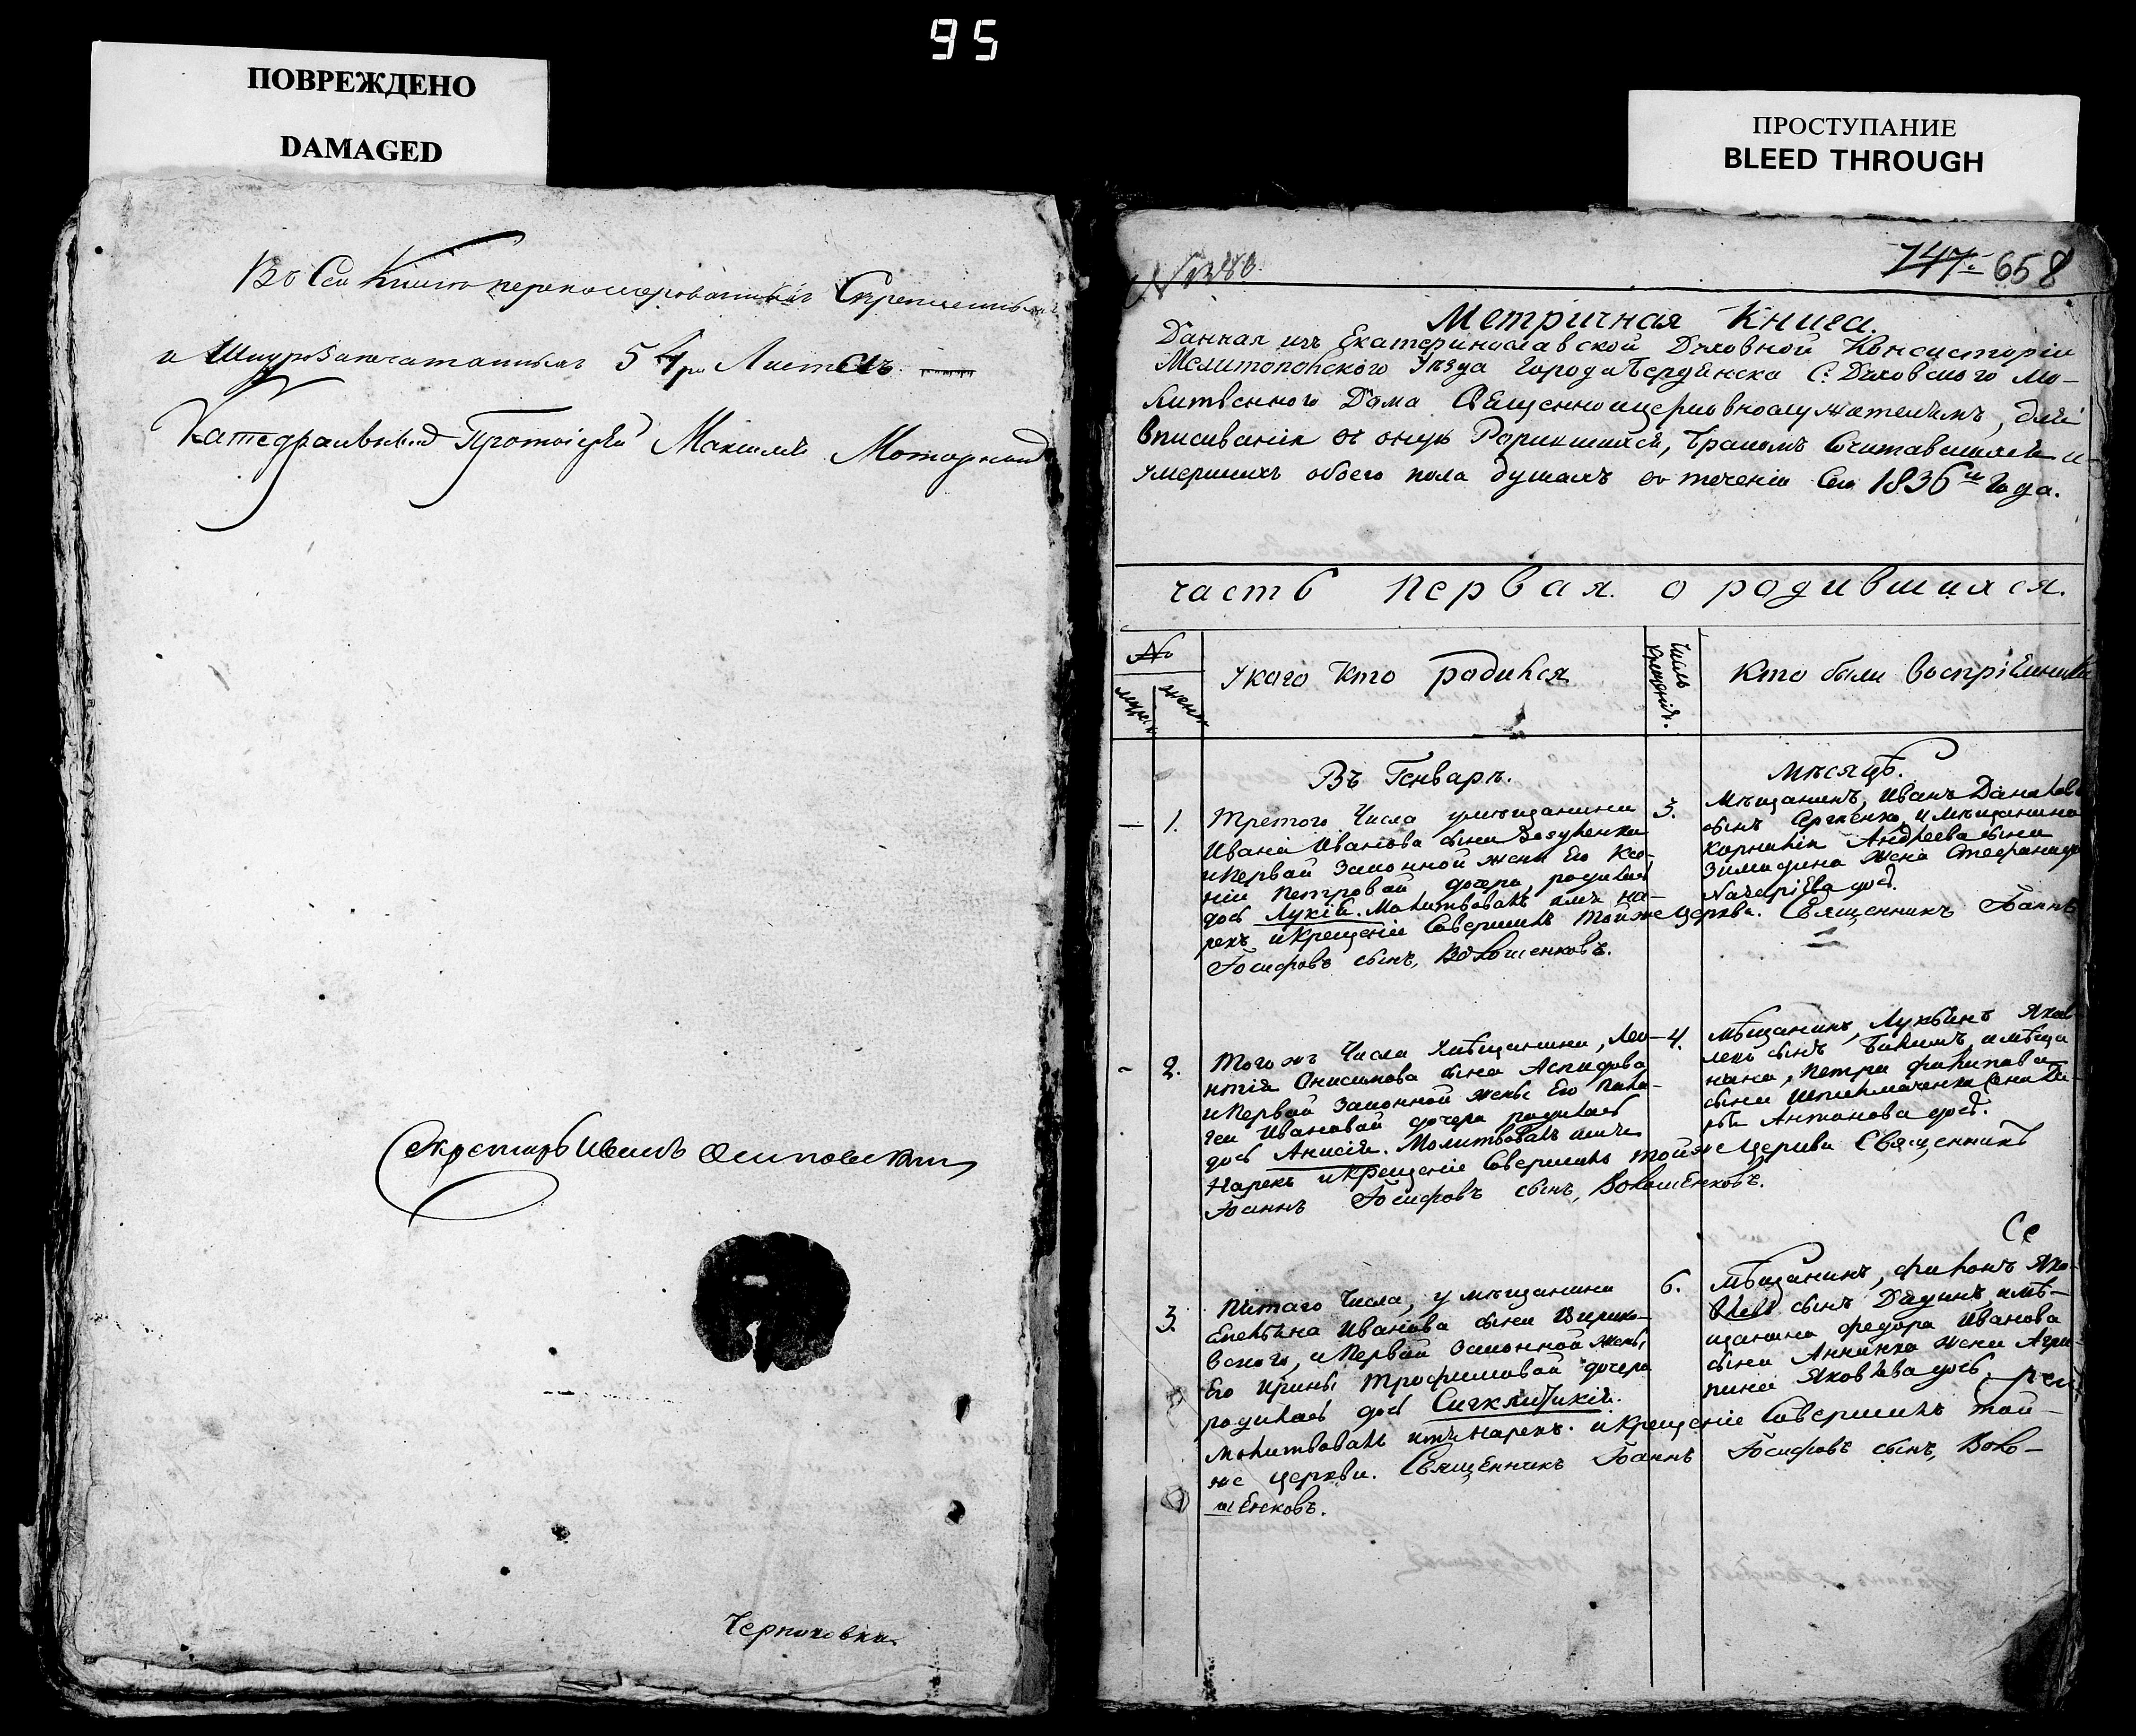 95
ПОВРЕЖДЕНО
DAMAGED
ПРОСТУПАНИЕ
BLEED THROUGH
Въ Сей Книге перенумерованныхъ Скрепленныхъ
и Шнурозапечатанныхъ 54ре Листа
Катедральный Протоіерей Максимъ
Секретарь Иванъ
747. 658
Метричная Книга.
Данная изъ Екатеринославской Духовной Консисторіи
Мелитопольского Уѣзда города Бердянска С. Духовского Мо-
литвенного Дома Священноцерковнослужителямъ, для
вписыванія въ оную Родившихся, бракомъ Сочитавшихся и
умершихъ обоего пола душахъ въ теченіи Сего 1836го Года.
часть первая о родившихся.
№
мужск женск
Укого Кто родился
Числь крещенія.
Кто были воспріемники
Въ Генварѣ.
Мѣсяцѣ.
1.
Третого Числа умещанина
Ивана Иванова сына
иПервой Законной жены Его Ксе-
ніи Петровой дочери родилась
дочь Лукія. Молитвовалъ имя на-
рекъ иКрещеніе Совершилъ тойже Церкви. Священникъ Іоаннъ
Іосифовъ сынъ, Волошенковъ.
3.
Мѣщанинъ, Иванъ Данилова
сынъ Сергіенко, и Мѣщанина
Корнилія Андреева сына
жена Стефанида
Назаріева дочь.
2.
Того жъ Числа Умѣщанина, Лео-
нтія Онисимова сына
иПервой Законной жены Его Пела-
геи Ивановой дочери родилась
дочь Анисія. Молитвовалъ имя
Нарекъ иКрещеніе Совершилъ тойже Церкви Священникъ
Іоаннъ Іосифовъ сынъ, Волошенковъ.
4.
Мѣщанинъ, Лукьянъ Яков-
левъ сынъ имѣща
нина, Петра Филипова
сына жена
Антонова дочь.
3.
Пятаго Числа, у мѣщанина
Емельяна Иванова сына
вского, иПервой Законной жены
Его Ирины Трофимовой дочери
родилась дочь Сигклитикія.
Молитвовалъ имя Нарекъ. иКрещеніе Совершилъ той-
же церкви. Священникъ Іоаннъ Іосифовъ сынъ, Воло-
шенковъ.
6.
Мѣщанинъ, Филонъ Яко-
влевъ сынъ Дядинъ имѣ-
щанина Федора Иванова
сына жена Агри-
пина Яковлева дочь